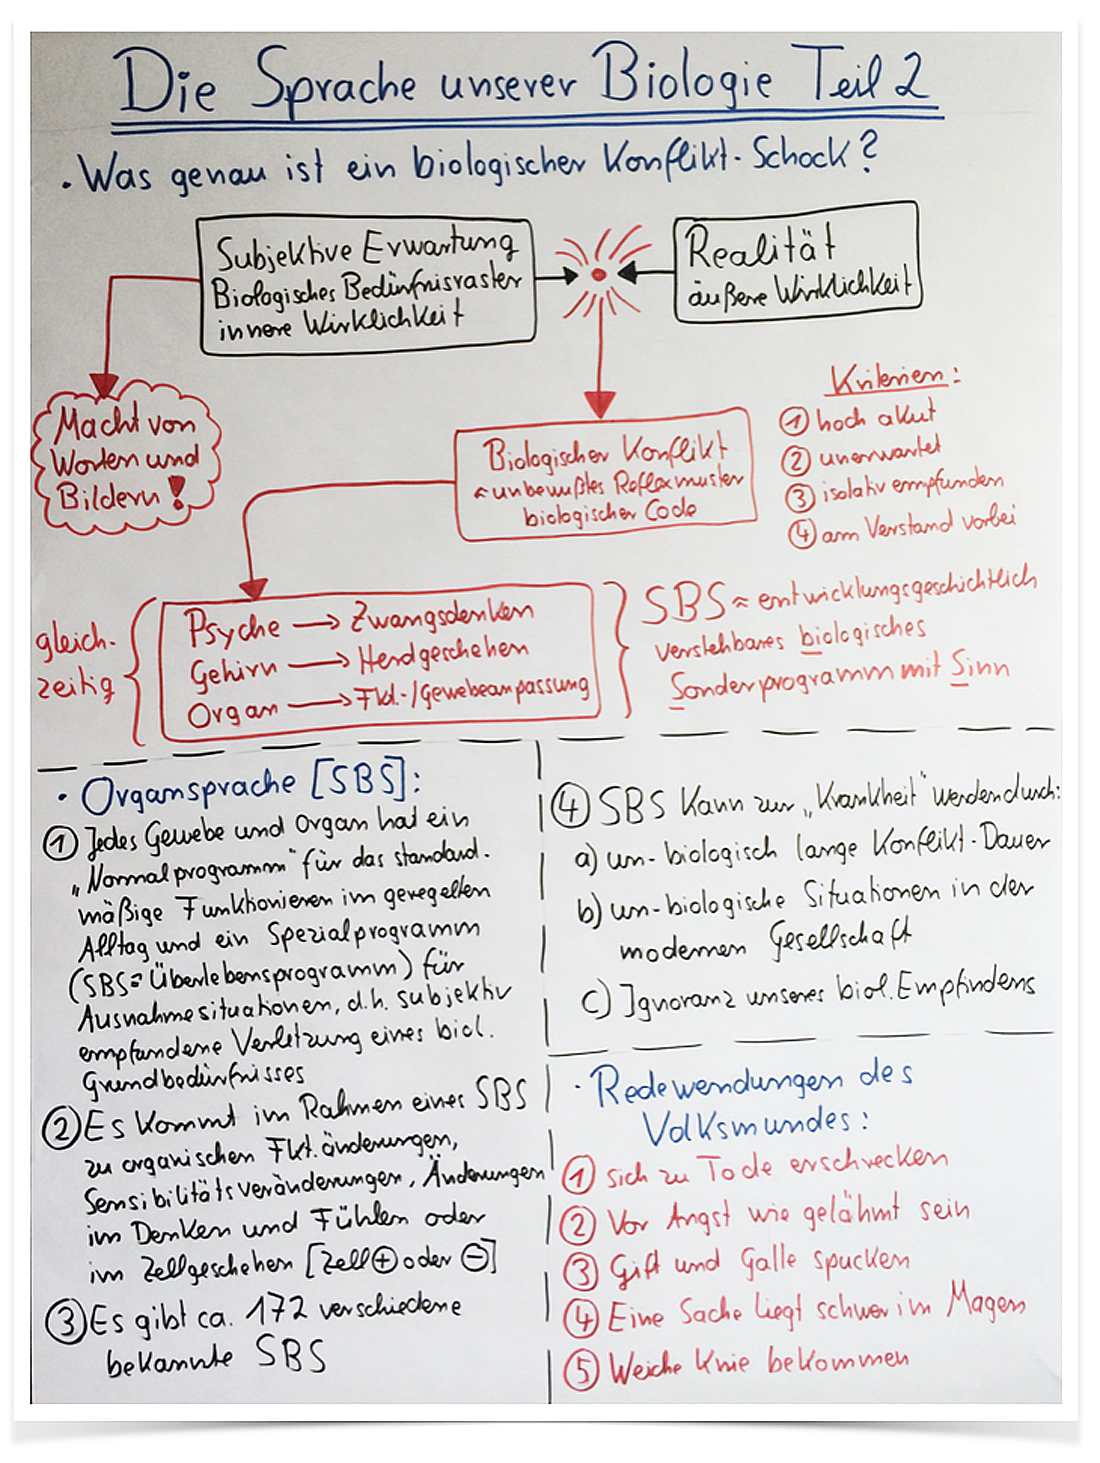 Die Sprache unserer Biologie Teil 2
• Was genau ist ein biologischer Konflikt-Schock?
Subjektive Erwartung
Biologisches Bedürfnisraster
innere Wirklichkeit
Realität
äußere Wirklichkeit
Macht von
Worten und
Bildern!
Biologischer Konflikt
≈ unbewußtes Reflexmuster
biologischer Code
Kriterien:
① hoch akut
② unerwartet
③ isolativ empfunden
④ am Verstand vorbei
gleich-
zeitig
Psyche → Zwangsdenken
Gehirn → Herdgeschehen
Organ → Fkt.-/Gewebeanpassung
SBS ≈ entwicklungsgeschichtlich
verstehbares biologisches
Sonderprogramm mit Sinn
• Organsprache [SBS]:
① Jedes Gewebe und Organ hat ein
„Normalprogramm“ für das standard-
mäßige Funktionieren im geregelten
Alltag und ein Spezialprogramm
(SBS = Überlebensprogramm) für
Ausnahmesituationen, d.h. subjektiv
empfundene Verletzung eines biol.
Grundbedürfnisses
② Es kommt im Rahmen eines SBS
zu organischen Fkt.änderungen,
Sensibilitätsveränderungen, Änderungen
im Denken und Fühlen oder
im Zellgeschehen [Zell ⊕ oder ⊖]
③ Es gibt ca. 172 verschiedene
bekannte SBS
④ SBS kann zur „Krankheit“ werden durch:
a) un-biologisch lange Konflikt-Dauer
b) un-biologische Situationen in der
modernen Gesellschaft
c) Ignoranz unseres biol. Empfindens
• Redewendungen des
Volksmundes:
① sich zu Tode erschrecken
② Vor Angst wie gelähmt sein
③ Gift und Galle spucken
④ Eine Sache liegt schwer im Magen
⑤ Weiche Knie bekommen